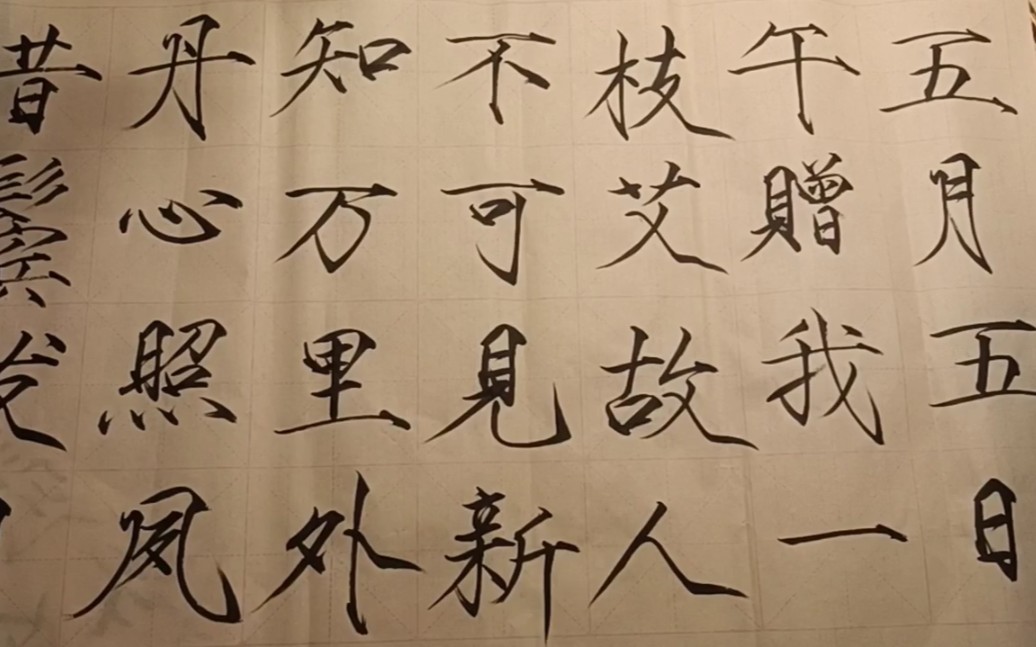 五月五日
午贈我一
枝艾故人
不可見新
知万里外
丹心照夙
昔鬓发